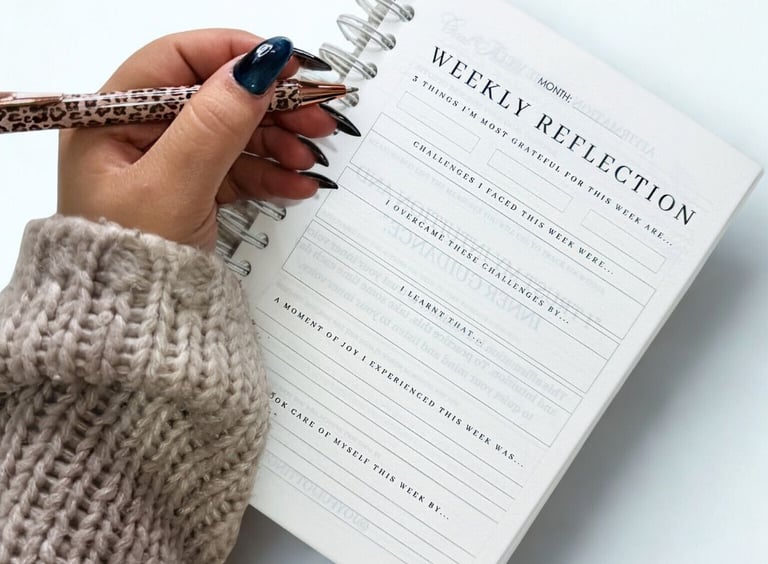 MONTH:
WEEKLY REFLECTION
3 THINGS I'M MOST GRATEFUL FOR THIS WEEK ARE...
CHALLENGES I FACED THIS WEEK WERE...
I OVERCAME THESE CHALLENGES BY...
I LEARNT THAT...
A MOMENT OF JOY I EXPERIENCED THIS WEEK WAS...
CARE OF MYSELF THIS WEEK BY...